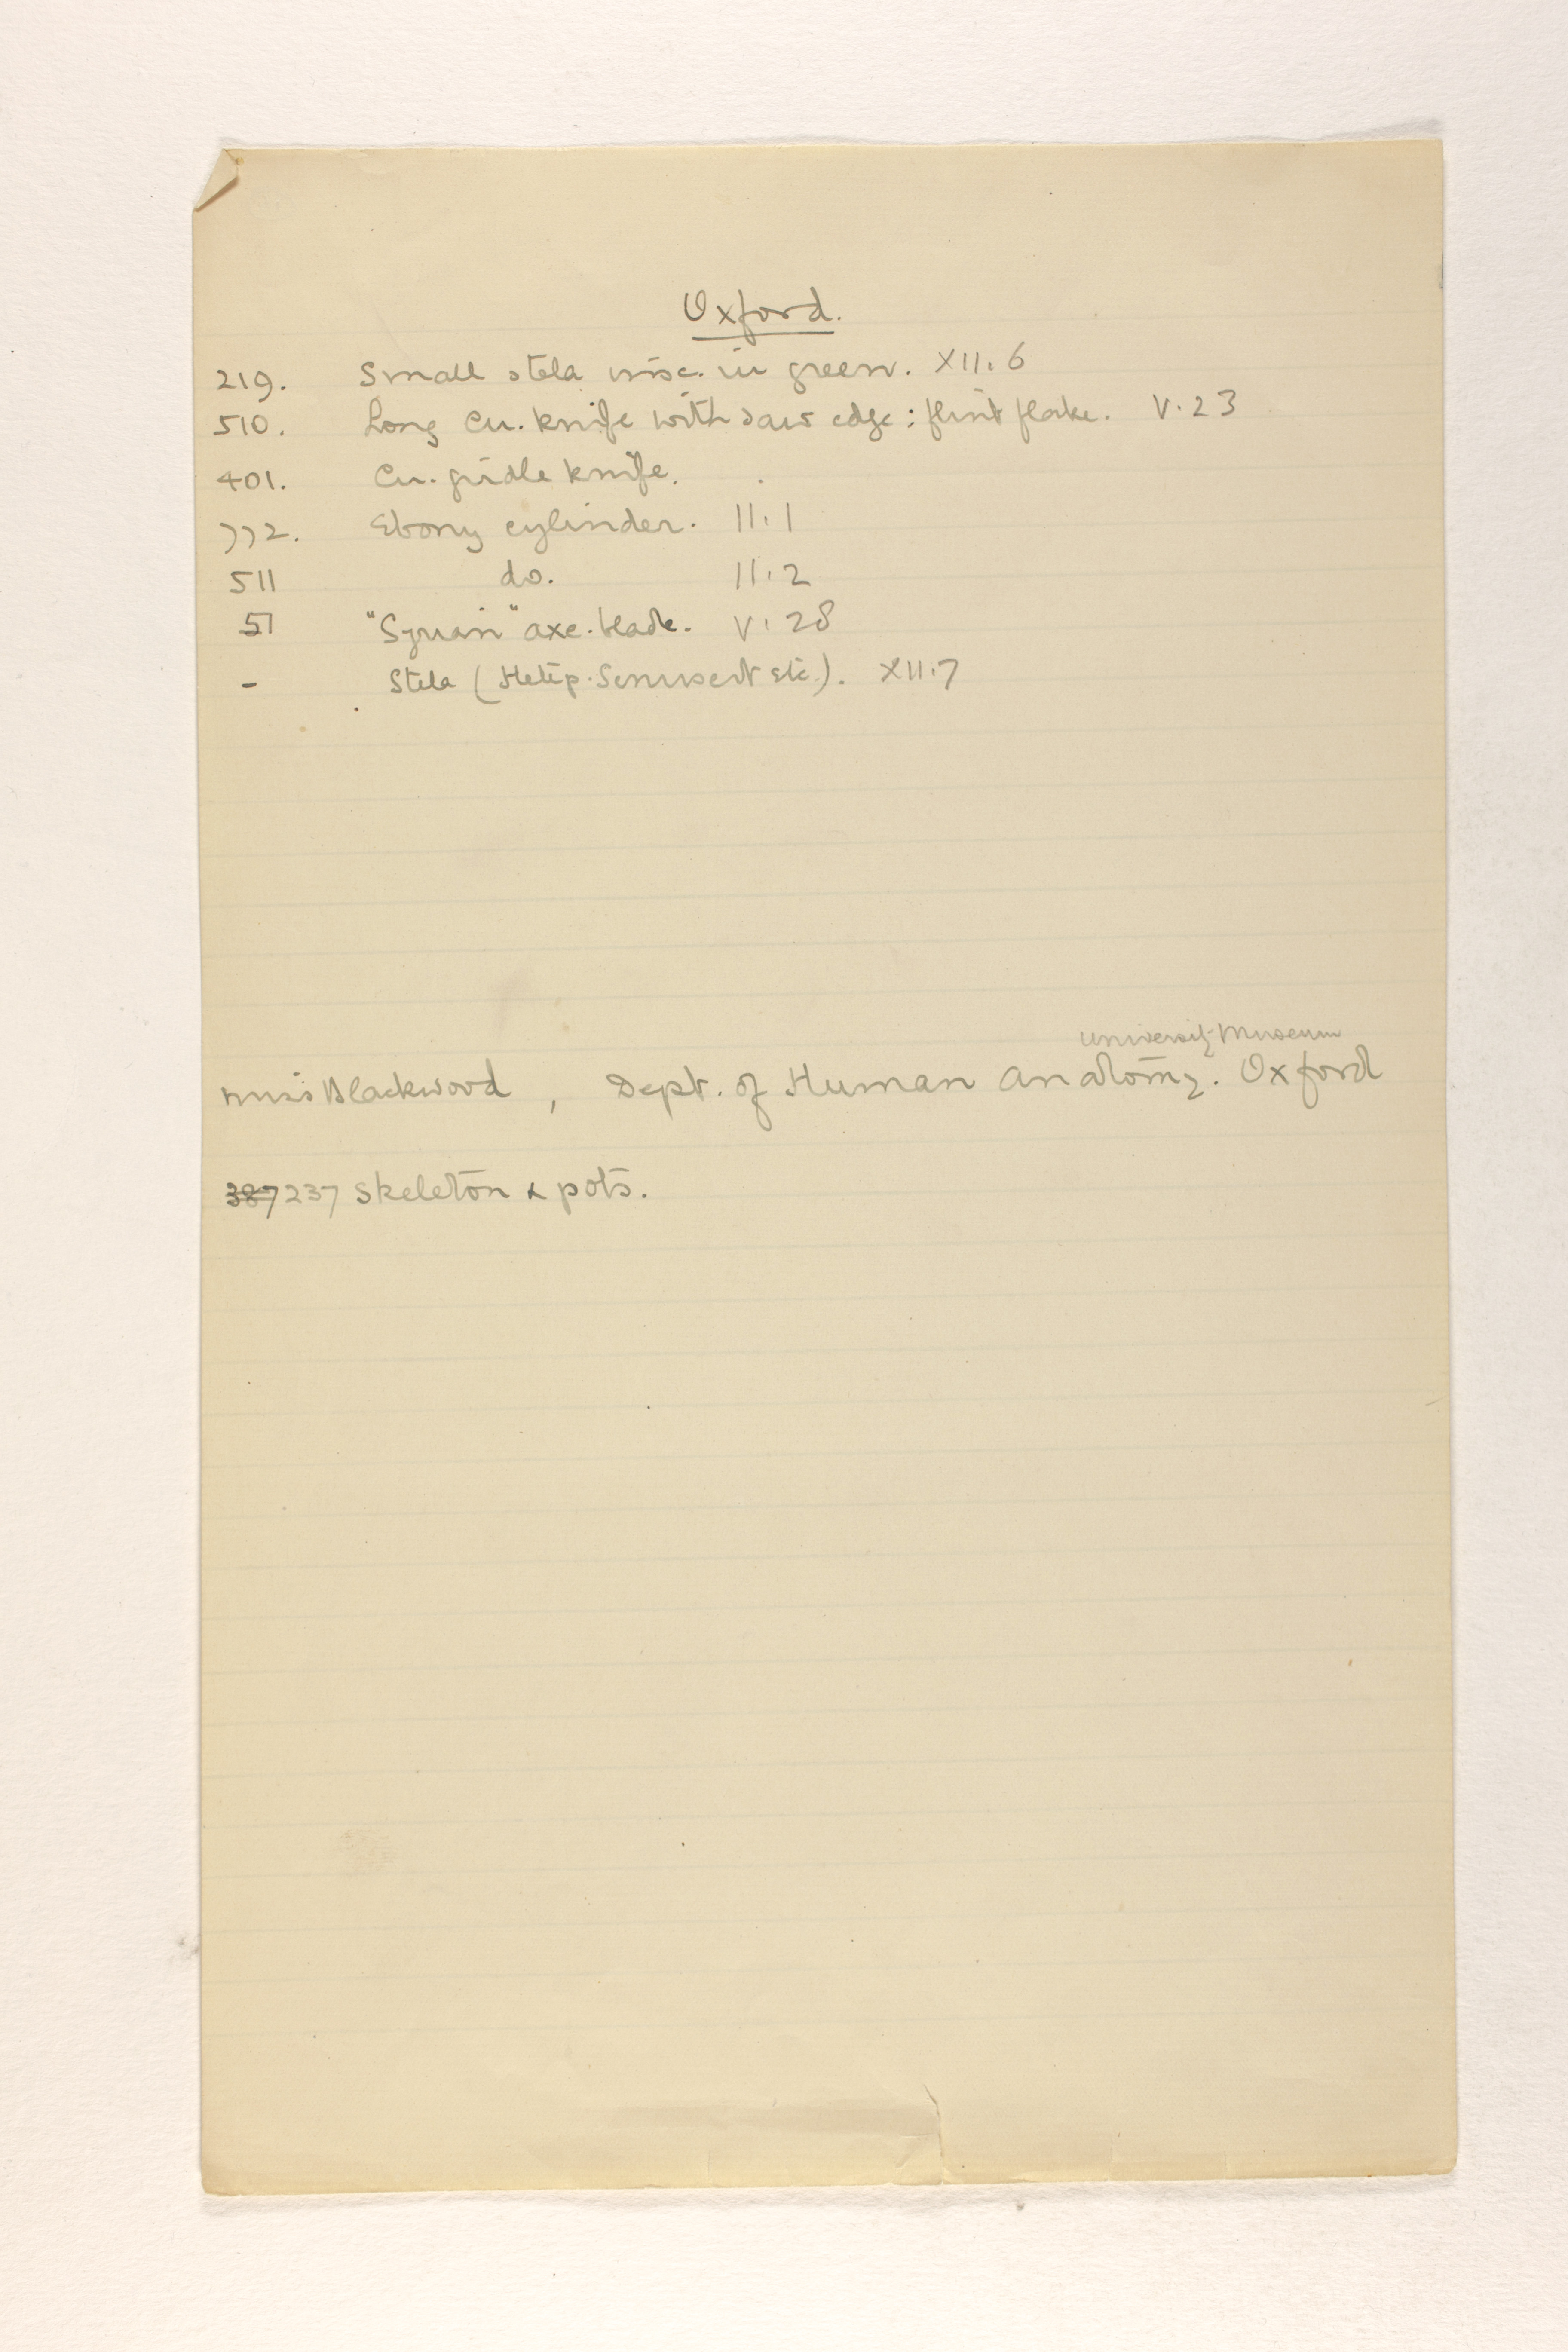 Oxford.
219. Small stela insc. in green. XII.6
510. Long Cu. knife with saw edge : flint flake. V.23
401. Cu. girdle knife.
772. Ebony cylinder. II.1
511 do. II.2
51 "Syrian" axe-blade. V.28
- Stela (Hetep-Senusert etc.). XII.7
University Museum
Miss Blackwood, Dept. of Human Anatomy. Oxford
387 237 Skeleton & pots.